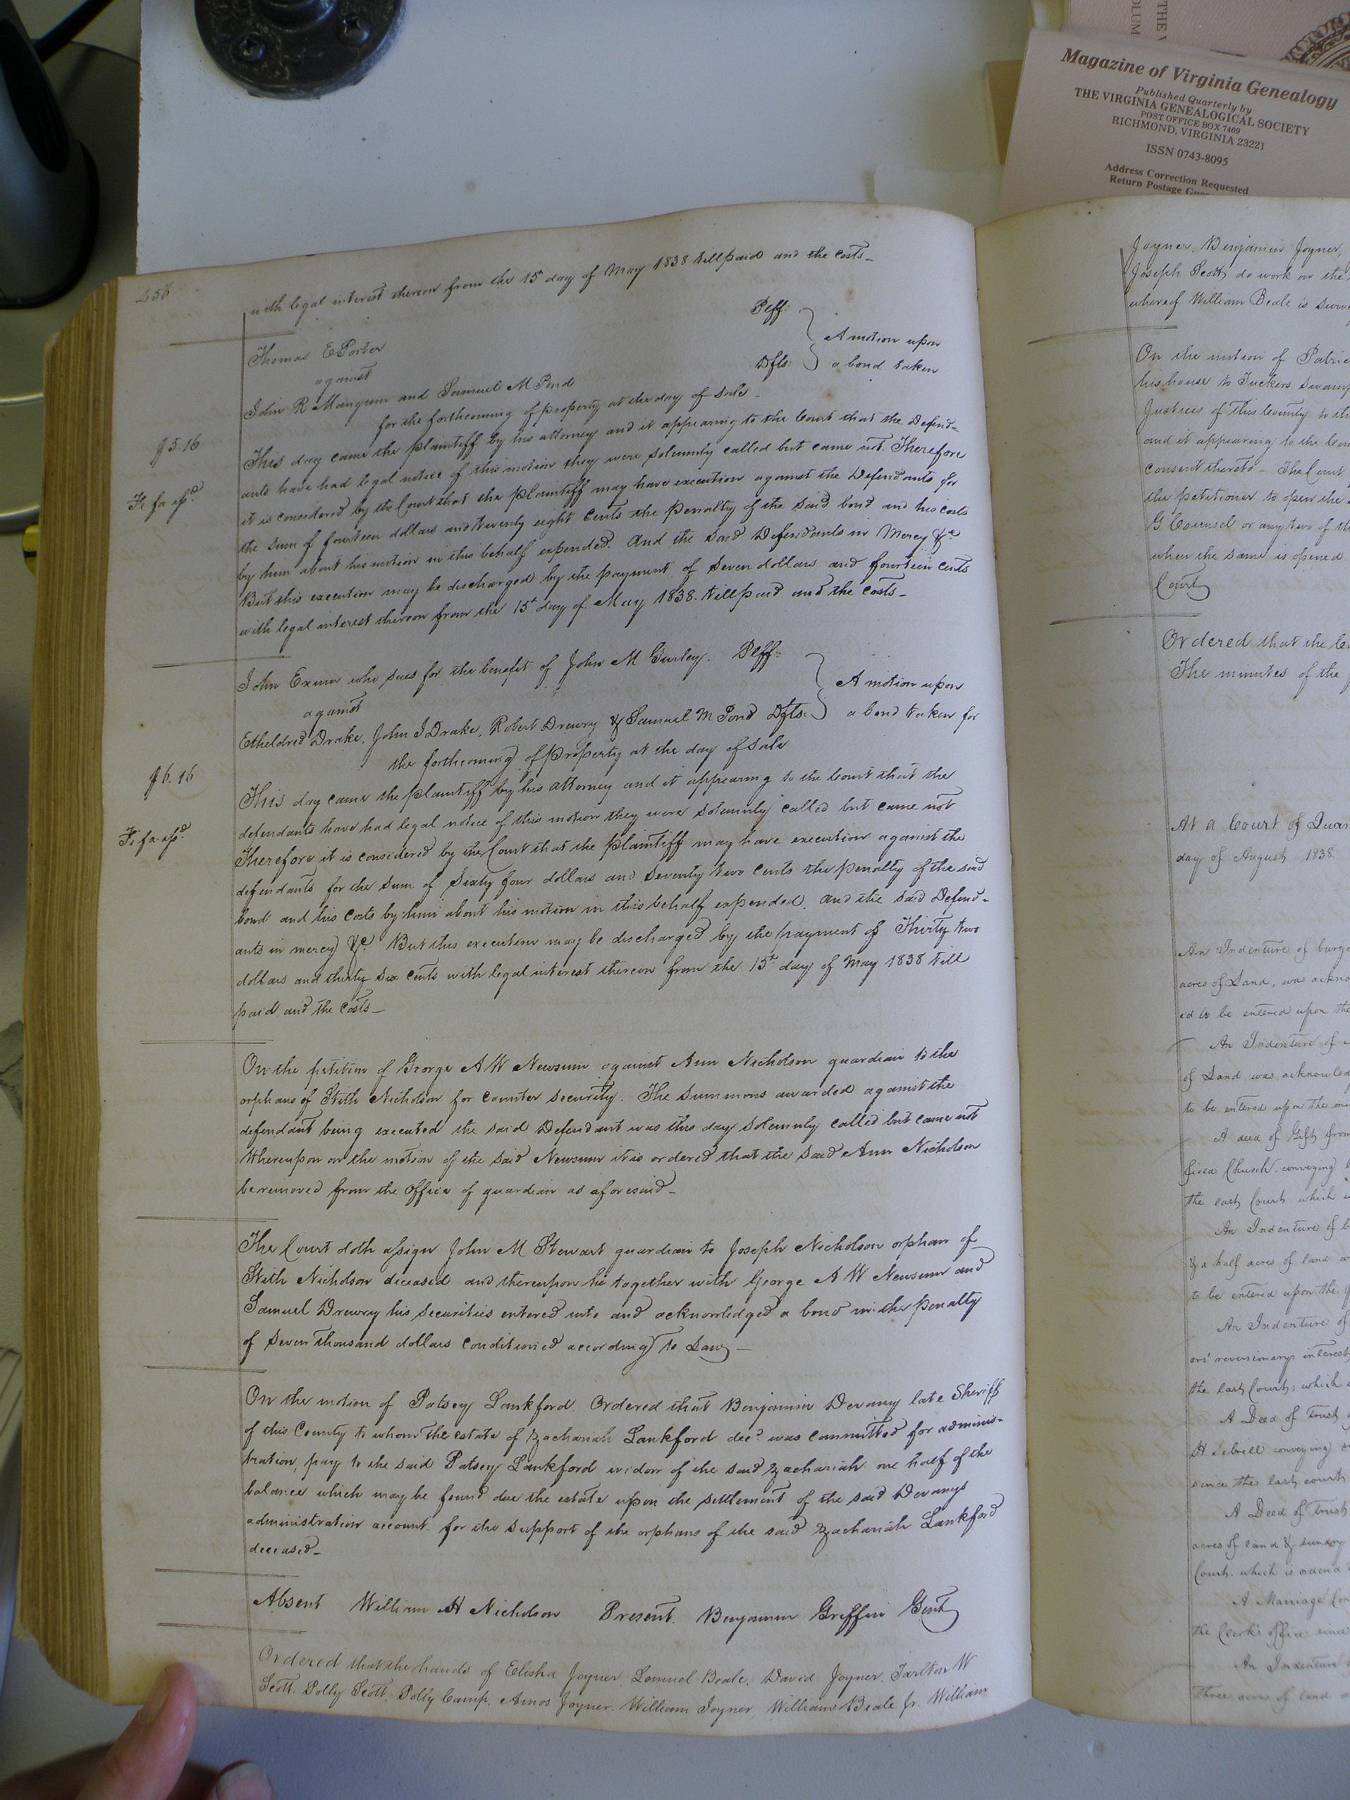 Magazine of Virginia Genealogy
Published Quarterly by
THE VIRGINIA GENEALOGICAL SOCIETY
POST OFFICE BOX 7469
RICHMOND, VIRGINIA 23221
ISSN 0743-8095
Address Correction Requested
Return Postage
with legal interest thereon from the 15t day of May 1838 till paid and the costs_
Thomas E Porter Plff:
against A motion upon
John R Mangum and Samuel M Pond Dfts: a bond taken
for the forthcoming of property at the day of sale_
$5.16
This day came the plaintiff by his attorney and it appearing to the Court that the Defend=
ants have had legal notice of this motion they were solemnly called but came not. Therefore
Fi fa
it is considered by the Court that the plaintiff may have execution against the Defendants for
the sum of fourteen dollars and twenty eight Cents the penalty of the said bond and his costs
by him about his motion in this behalf expended. And the said Defendants in Mercy &c
But this execution may be discharged by the payment of Seven dollars and fourteen cents
with legal interest thereon from the 15t day of May 1838. till paid and the costs_
John Exum who sues for the benefit of John M Gurley. Plff:
against A motion upon
Etheldred Drake, John J Drake, Robert Drewry & Samuel M Pond Dfts: a bond taken for
the forthcoming of Property at the day of sale
$6.16
This day came the plaintiff by his attorney and it appearing to the Court that the
defendants have had legal notice of this motion they were solemnly called but came not
Fi fa
Therefore it is considered by the Court that the plaintiff may have execution against the
defendants for the sum of Sixty four dollars and Seventy two cents the penalty of the said
bond and his costs by him about his motion in this behalf expended. And the said Defend-
ants in mercy &c But this execution may be discharged by the payment of Thirty two
dollars and thirty six cents with legal interest thereon from the 15t day of May 1838 till
paid and the costs_
On the petition of George A W Newsum against Ann Nicholson guardian to the
orphans of Stith Nicholson for counter security. The summons awarded against the
defendant being executed the said Defendant was this day solemnly called but came not
Whereupon on the motion of the said Newsum it is ordered that the said Ann Nicholson
be removed from the Office of guardian as aforesaid_
The Court doth assign John M Stewart guardian to Joseph Nicholson orphan of
Stith Nicholson deceased and thereupon he together with George A W Newsum and
Samuel Drewry his securities entered into and acknowledged a bond in the penalty
of Seven thousand dollars conditioned according to Law_
On the motion of Patsey Lankford Ordered that Benjamin Devany late Sheriff
of this County to whom the estate of Zachariah Lankford decd was committed for adminis-
tration, pay to the said Patsey Lankford widow of the said Zachariah one half of the
balance which may be found due the estate upon the settlement of the said Devanys
administration account for the support of the orphans of the said Zachariah Lankford
deceased_
Absent William H Nicholson Present. Benjamin Griffin Gent
Ordered that the hands of Elisha Joyner, Lemuel Beale, David Joyner, Tarlton W
Scott, Polly Scott, Polly Camp, Amos Joyner, William Joyner, William Beale Jr. William
Joyner, Benjamin Joyner,
Joseph Scott do work on the
whereof William Beale is
On the motion of
his house to Tuckers Swamp
Justices of this County to
and it appearing to the
consent thereto_ The Court
the petitioner to open the
G Counsel or any two of
when the same is opened
Court
Ordered that the
The minutes of the
At a Court of
day of August 1838
An Indenture of
acres of Land, was
ed to be entered upon the
An Indenture of
of Land was
to be entered upon the
A deed of Gift from
Church conveying
the last Court which
An Indenture of
& a half acres of land
to be entered upon the
An Indenture of
reversionary interest
the last Court, which
A Deed of trust
conveying
since the last court
A Deed of trust
acres of land & sundry
Court. which is
A Marriage
the Clerk's office since
An Indenture
three acres of land